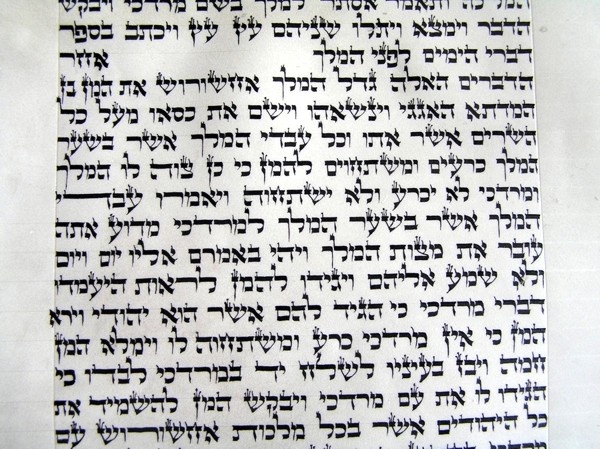 ותאמר אסתר למלך בשם מרדכי ויבקש
הדבר וימצא ויתלו שניהם על עץ ויכתב בספר
דברי הימים לפני המלך אחר
הדברים האלה גדל המלך אחשורוש את המן בן
המדתא האגגי וינשאהו וישם את כסאו מעל כל
השרים אשר אתו וכל עבדי המלך אשר בשער
המלך כרעים ומשתחוים להמן כי כן צוה לו המלך
ומרדכי לא יכרע ולא ישתחוה ויאמרו עבדי
המלך אשר בשער המלך למרדכי מדוע אתה
עובר את מצות המלך ויהי באמרם אליו יום ויום
ולא שמע אליהם ויגידו להמן לראות היעמדו
דברי מרדכי כי הגיד להם אשר הוא יהודי וירא
המן כי אין מרדכי כרע ומשתחוה לו וימלא המן
חמה ויבז בעיניו לשלח יד במרדכי לבדו כי
הגידו לו את עם מרדכי ויבקש המן להשמיד את
כל היהודים אשר בכל מלכות אחשורוש עם